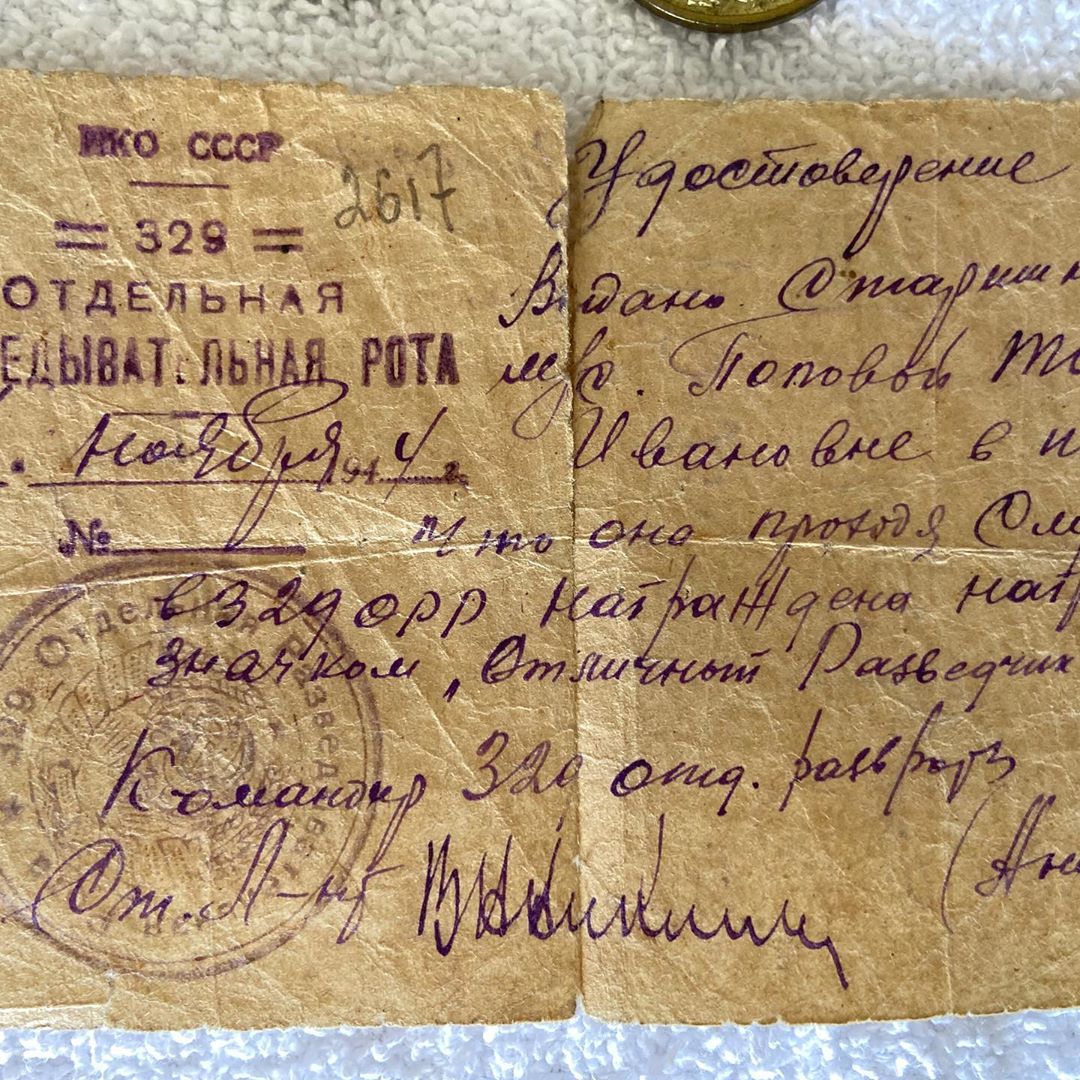 НКО СССР
2617
= 329 =
ОТДЕЛЬНАЯ
ЕДЫВАТЕЛЬНАЯ РОТА
Ноября 194 4 г.
№
Удостоверение
Выдано Старшин
м/с. Поповой
Ивановне в
что она проходя
в 329 орр награждена наг
значком „Отличный Разведчик
Командир 329 отд. разв роты
Ст. Л-нт
329 Отдельная Развед